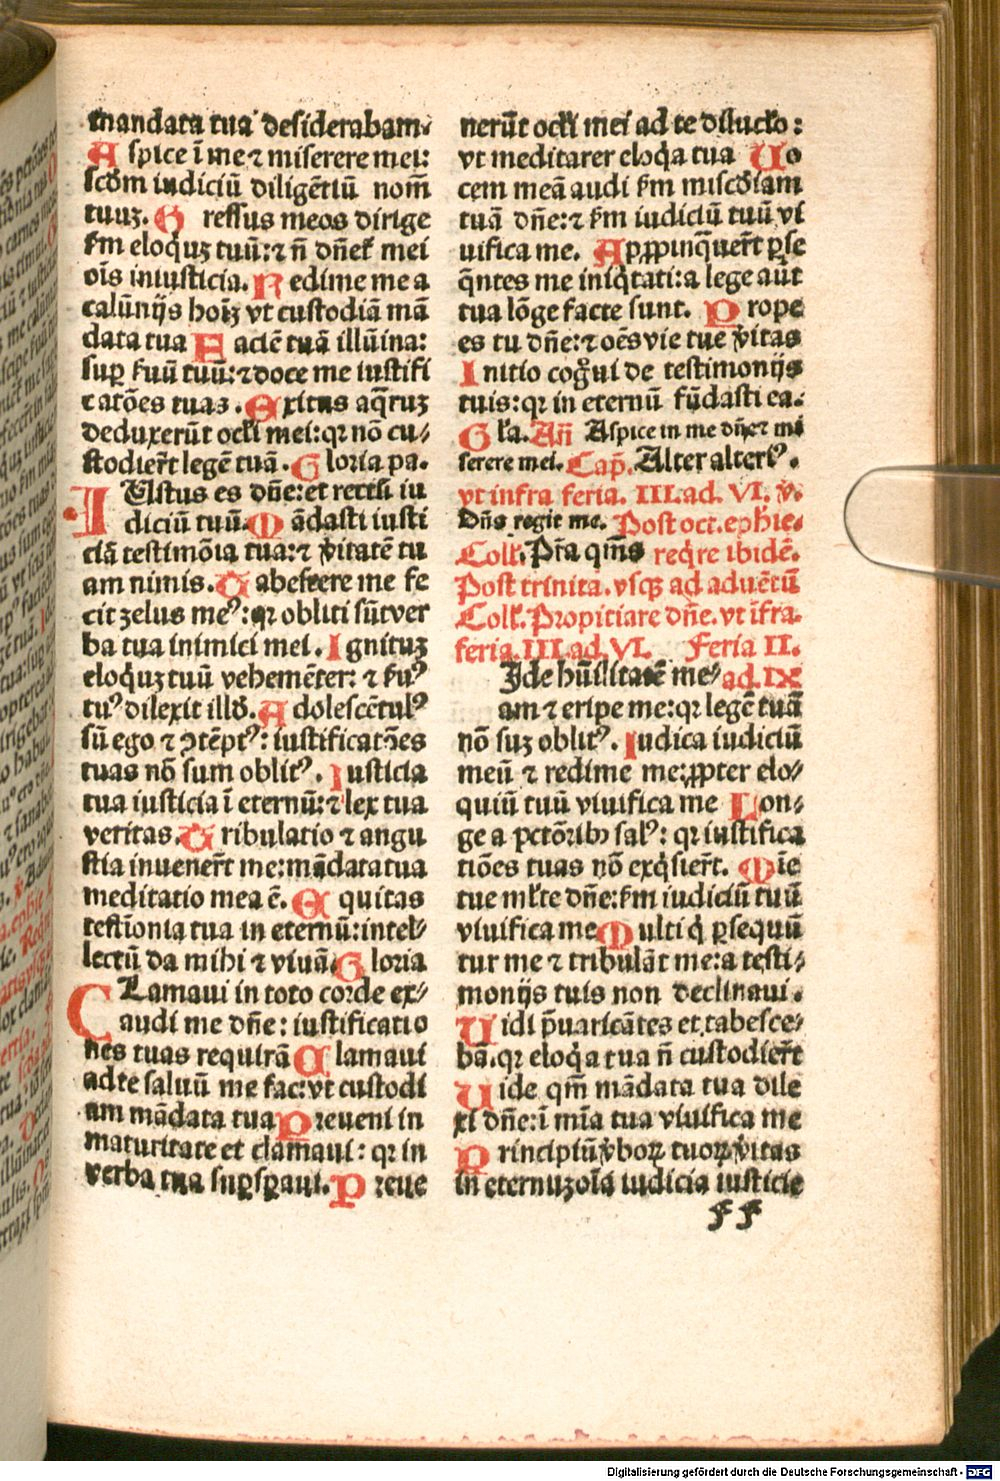 mandata tua desiderabam⸗
Aspice ī me ⁊ miserere mei:
scdm iudiciū diligētiū nom̄
tuuꝫ. Gressus meos dirige
s̄m eloqͥuꝫ tuū: ⁊ n̄ dn̄et᷑ mei
oīs iniusticia. Redime me a
calūnijs hoīꝫ vt custodiā mā
data tua Faciē tuā illūina:
suꝑ ẜuū tuū: ⁊ doce me iustifi
catōes tuas. Exitus aq̄ruꝫ
deduxerūt ocl̄i mei: qꝛ nō cu⸗
stodier̄t legē tuā. Gloria pa.
IUstus es dn̄e: et rectū iu
diciū tuū. Mādasti iusti
ciā testimōia tua: ⁊ v̄itatē tu
am nimis. Tabescere me fe
cit zelus meꝰ: qꝛ obliti sūt ver
ba tua inimici mei. Ignituꝫ
eloqͥuꝫ tuū vehemēter: ⁊ ẜuꝰ
tuꝰ dilexit illō. Adolescētulꝰ
sū ego ⁊ ꝯtēptꝰ: iustificatōes
tuas nō sum oblitꝰ. Iusticia
tua iusticia ī eternū: ⁊ lex tua
veritas. Tribulatio ⁊ angu
stia inuener̄t me: mādata tua
meditatio mea ē. Equitas
testīonia tua in eternū: intel⸗
lectū da mihi ⁊ viuā Gloria
CLamaui in toto corde ex⸗
audi me dn̄e: iustificatio
nes tuas requirā Clamaui
ad te saluū me fac: vt custodi
am mādata tua Preueni in
maturitate et clamaui: qꝛ in
verba tua suꝑsꝑaui. Preue
nerūt ocl̄i mei ad te diluclo:
vt meditarer eloqͥa tua Uo
cem meā audi s̄m misc̄diam
tuā dn̄e: ⁊ s̄m iudiciū tuū vi
uifica me. Aꝓpinq̄uer̄t ꝑse
q̄ntes me iniqͥtati: a lege aūt
tua lōge facte sunt. Prope
es tu dn̄e: ⁊ oēs vie tue v̄itas
Initio cogͦui de testimonijs
tuis: qꝛ in eternū fūdasti ea.
Gl̄a. Añ Aspice in me dn̄e ⁊ mi
serere mei. Cap̄. Alter alteriꝰ.
vt infra feria. III. ad. VI. v̄.
Dn̄s regit me. Post oct. eph̄ie.
Coll̄. P̄ra qm̄s reqͥre ibidē.
Post trinita. vsqꝫ ad aduētū
Coll̄. Propitiare dn̄e. vt īfra.
feria. III. ad. VI. Feria II.
Ide hūilitatē me⸗ ad. IX
am ⁊ eripe me: qꝛ legē tuā
nō suꝫ oblitꝰ. Iudica iudiciū
meū ⁊ redime me: ꝓpter elo⸗
quiū tuū viuifica me Lon⸗
ge a pctōribꝰ salꝰ: qꝛ iustifica
tiōes tuas nō exqͥsier̄t. Mīe
tue ml̄te dn̄e: s̄m iudiciū tuū
viuifica me Multi qͥ ꝑsequū
tur me ⁊ tribulāt me: a testi⸗
monijs tuis non declinaui.
Uidi p̄uaricātes et tabesce⸗
bā. qꝛ eloqͥa tua n̄ custodier̄t
Uide qm̄ mādata tua dile
xi dn̄e: ī mīa tua viuifica me
Principiū v̄boꝝ tuoꝝ v̄itas
in eternuꝫ oīa iudicia iusticie
ff
Digitalisierung gefördert durch die Deutsche Forschungsgemeinschaft - DFG